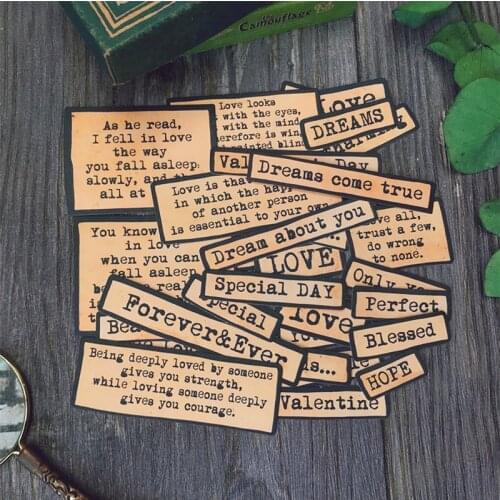 Camouflage
As he read,
I fell in love
the way
you fall asleep:
slowly, and
all at
Love looks
with the eyes,
with the mind
is
blind
Love
DREAMS
Day
Dreams come true
Love is that
in which the
of another person
is essential to your own
Dream about you
all,
trust a few,
do wrong
to none.
You know
in love
when you can
fall asleep
LOVE
Special DAY
Only
Perfect
Special
love
Blessed
Forever&Ever
is...
HOPE
Being deeply loved by someone
gives you strength,
while loving someone deeply
gives you courage.
Valentine